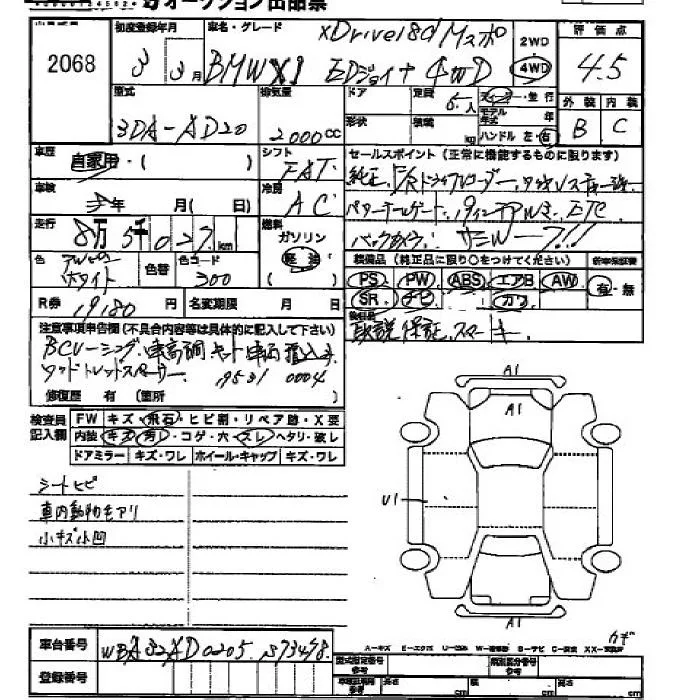 オークション出品票
2068
初度登録年月 3年3月
車名・グレード xDrive18d Mスポ
BMW X1 EDジョイ+ 4WD
2WD
4WD
評価点 4.5
型式 3DA-AD20
排気量 2000cc
ドア
定員 5人
形状
積載 kg
ディーラー・並行
モデル年式 年
ハンドル 左・右
外装 内装
B C
車歴 自家用・( )
シフト FAT
セールスポイント(正常に機能するものに限ります)
車検 年 月( 日)
冷房 AC
純正 F/Rドラレコーダー
パワーテールゲート 19インチAW ETC
バックカメラ
走行 8万5千027km
燃料 ガソリン
軽油
装備品(純正品に限り○をつけてください)
新車保証書
PS PW ABS エアB AW
有・無
SR ナビ カワ
色 ホワイト
色替
色コード 300
R券 19180円
名変期限 月 日
後日品
取説 保証 スマートキー
注意事項申告欄(不具合内容等は具体的に記入して下さい)
BCレーシング 車高調キット
ワイドトレッドスペーサー 9531 0004
修復歴 有 (箇所 )
検査員記入欄
FW キズ・飛石・ヒビ割・リペア跡・X要
内装 キズ・汚・コゲ・穴・スレ・ヘタリ・破レ
ドアミラー キズ・ワレ ホイール・キャップ キズ・ワレ
シートヒビ
車内動物毛アリ
小キズ小凹
A1
A1
U1
A1
カギ
車台番号
登録番号
型式指定番号
類別区分番号
長さ cm
幅 cm
高さ cm